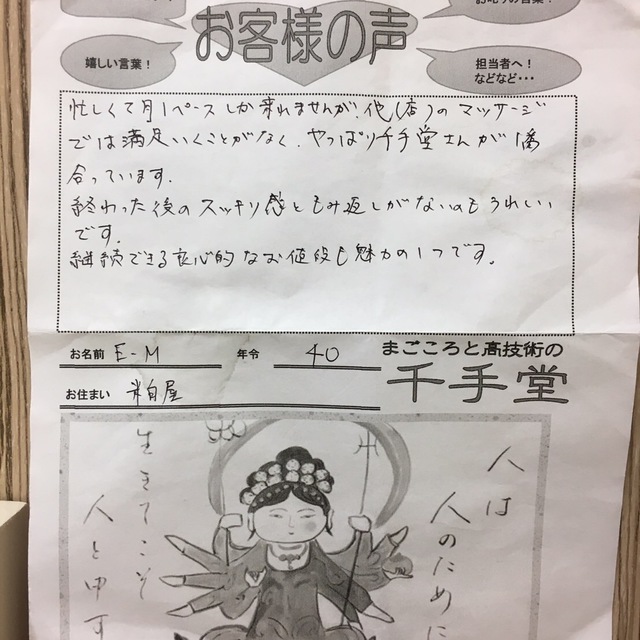 お叱りの言葉！
お客様の声
嬉しい言葉！
担当者へ！
などなど・・・
忙しくて月1ペースしか来れませんが、他(店)のマッサージ
では満足いくことがなく、やっぱり千手堂さんが1番
合っています。
終わった後のスッキリ感ともみ返しがないのもうれしい
です。
継続できる良心的なお値段も魅力の1つです。
お名前 E-M 年令 40
まごころと高技術の
千手堂
お住まい 粕屋
人は
人のために
生きてこそ
人と申す